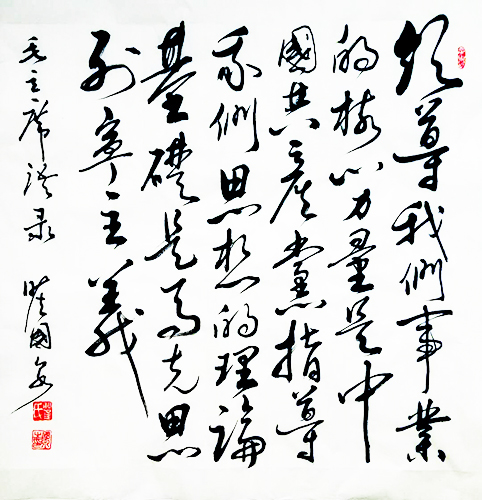 領導我們事業
的核心力量是中
國共産黨指導
我們思想的理論
基礎是马克思
列寧主義
毛主席语录 國安